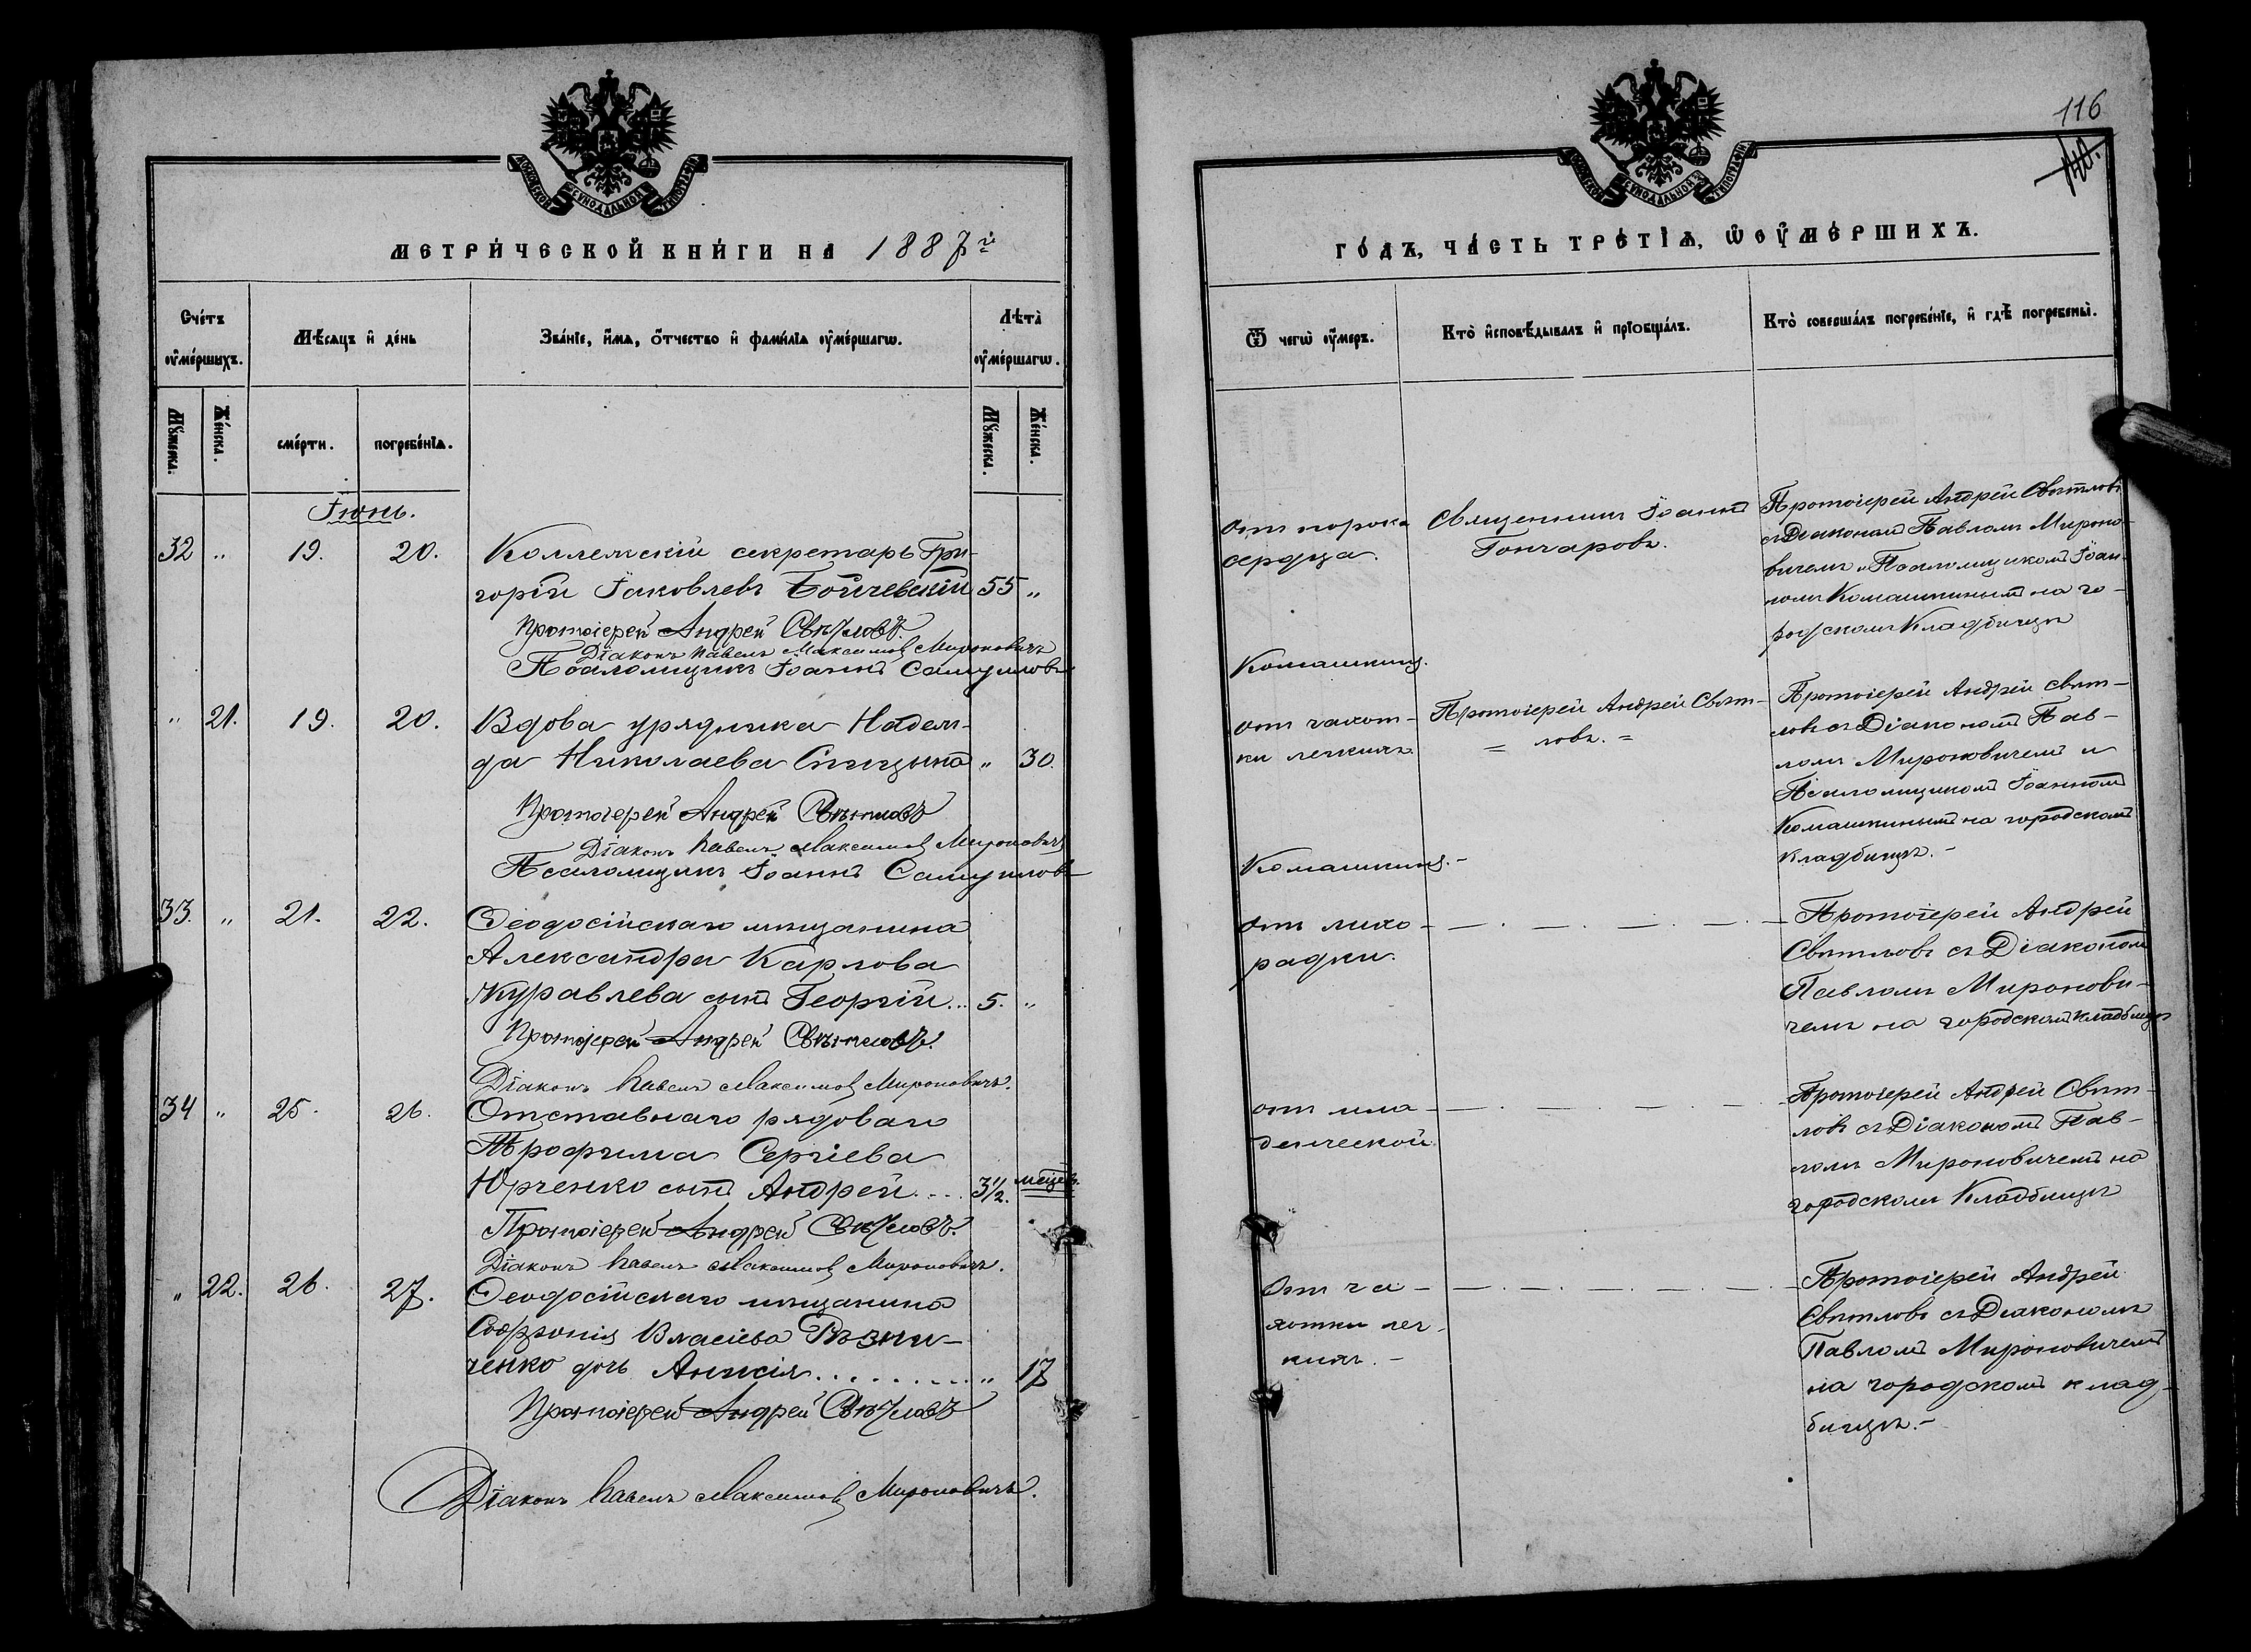 МОСКОВСКОЙ СѴНОДАЛЬНОЙ ТИПОГРАФІИ
МЕТРИ́ЧЕСКОЙ КНИ́ГИ НА 1887й
Сче́тъ ᲂу҆ме́ршыхъ.
Мѣ́сяцъ и҆ де́нь
Зва́нїе, и҆́мѧ, ѻ҆́тчество и҆ фами́лїѧ ᲂу҆ме́ршагѡ.
Лѣта̀ ᲂу҆ме́ршагѡ.
Мꙋ́жеска.
Же́нска.
сме́рти.
погребе́нїѧ.
Мꙋ́жеска.
Же́нска.
Іюнь.
32 " 19. 20. Коллежскій секретарь Гри-
горій Іаковлевъ Бойчевскій 55 "
Протоіерей Андрей Свѣтловъ.
Діаконъ Павелъ Максимов Мироновичъ
Псаломщикъ Іоаннъ Самуиловъ
" 21. 19. 20. Вдова урядника Надеж-
да Николаева Спицына " 30.
Протоіерей Андрей Свѣтловъ
Діаконъ Павелъ Максимов Мироновичъ
Псаломщикъ Іоаннъ Самуиловъ
33. " 21. 22. Ѳеодосійскаго мѣщанина
Александра Карпова
Журавлева сынъ Георгій... 5. "
Протоіерей Андрей Свѣтловъ.
Діаконъ Павелъ Максимов Мироновичъ.
34 " 25. 26. Отставнаго рядоваго
Трофима Сергіева
Юрченко сынъ Андрей.... 3½. месяц.
Протоіерей Андрей Свѣтловъ.
Діаконъ Павелъ Максимов Мироновичъ.
" 22. 26. 27. Ѳеодосійскаго мѣщанина
Софронія Власіева Рѣзни-
ченко дочь Анисія.......... " 17
Протоіерей Андрей Свѣтловъ
Діаконъ Павелъ Максимов Мироновичъ.
116
МОСКОВСКОЙ СѴНОДАЛЬНОЙ ТИПОГРАФІИ
ГО́ДЪ, ЧА́СТЬ ТРЕ́ТЇѦ, Ѡ҆ ᲂУ҆МЕ́РШИХЪ.
Ѿ чегѡ̀ ᲂу҆́меръ.
Кто̀ и҆сповѣ́дывалъ и҆ прїѡбща́лъ.
Кто̀ соверша́лъ погребе́нїе, и҆ гдѣ̀ погребены̀.
отъ порока
сердца.
Священникъ Іоаннъ
Гончаровъ.
Протоіерей Андрей Свѣтловъ
съ Діакономъ Павломъ Мироно-
вичемъ и Псаломщикомъ Іоан-
номъ Комашкинымъ на го-
родскомъ Кладбищѣ
Комашкинъ.
отъ чахот-
ки легкихъ
Протоіерей Андрей Свѣт-
= ловъ. =
Протоіерей Андрей Свѣт-
ловъ съ Діакономъ Пав-
ломъ Мироновичемъ и
Псаломщикомъ Іоанномъ
Комашкинымъ на городскомъ
кладбищѣ.-
Комашкинъ.-
отъ лихо-
радки.
Протоіерей Андрей
Свѣтловъ съ Діакономъ
Павломъ Миронови-
чемъ на городскомъ кладбищѣ
отъ мла-
денческой
Протоіерей Андрей Свѣт-
ловъ съ Діакономъ Пав-
ломъ Мироновичемъ на
городскомъ Кладбищѣ
Отъ ча-
хотки лег-
кихъ.-
Протоіерей Андрей
Свѣтловъ съ Діакономъ
Павломъ Мироновичемъ
на городскомъ клад-
бищѣ.-